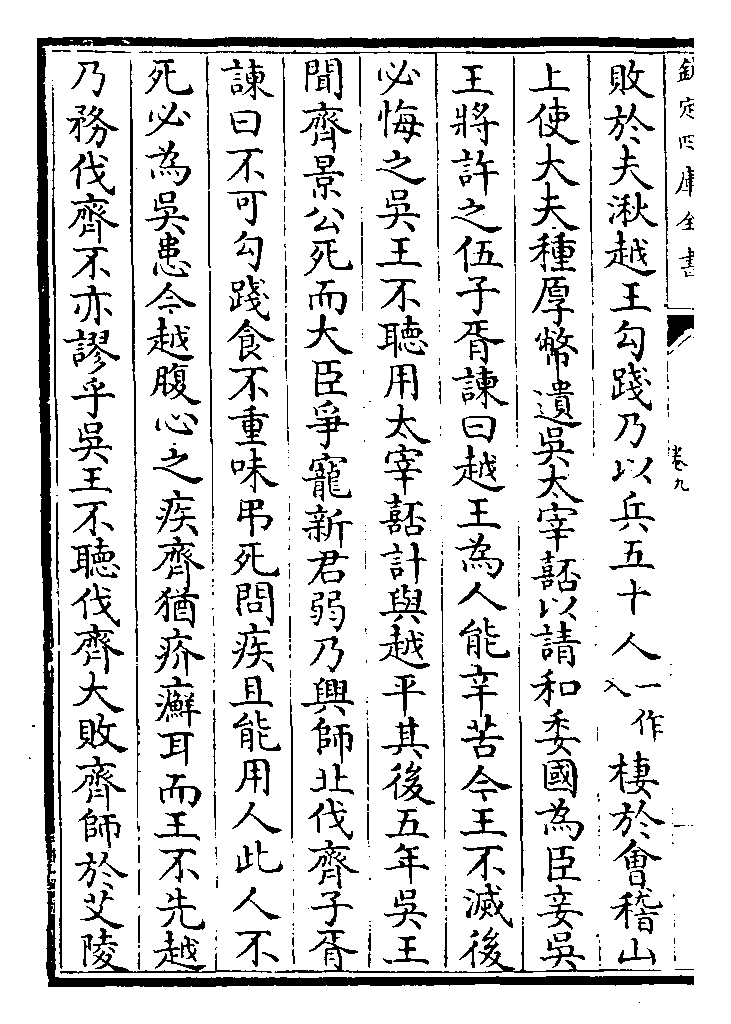 欽定四庫全書
卷九
敗於夫湫越王勾踐乃以兵五十人一作入棲於會稽山
上使大夫種厚幣遺吳太宰嚭以請和委國為臣妾吳
王將許之伍子胥諫曰越王為人能辛苦今王不滅後
必悔之吳王不聽用太宰嚭計與越平其後五年吳王
聞齊景公死而大臣爭寵新君弱乃興師北伐齊子胥
諫曰不可勾踐食不重味弔死問疾且能用人此人不
死必為吳患今越腹心之疾齊猶疥癬耳而王不先越
乃務伐齊不亦謬乎吳王不聽伐齊大敗齊師於艾陵